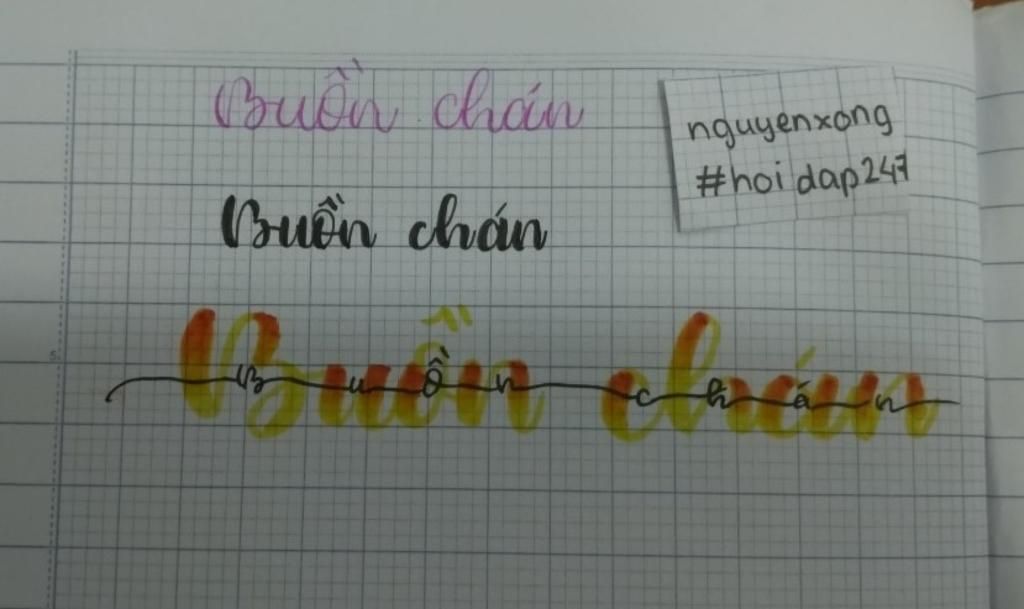 Buồn chán
nguyenxong
#hoidap247
Buồn chán
Buồn chán
Buồn chán